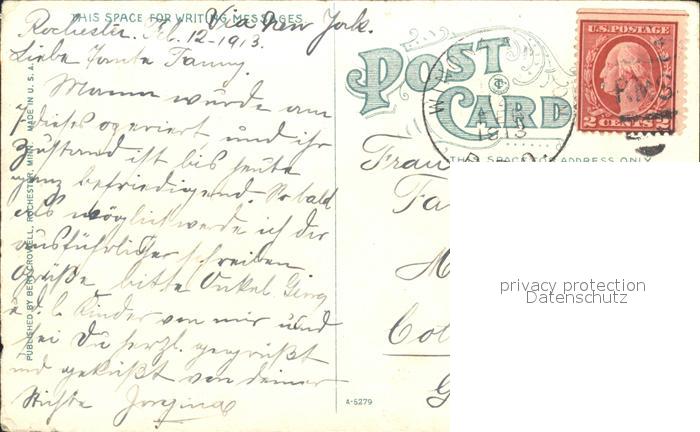 THIS SPACE FOR WRITING MESSAGES
Via New York.
Rochester. 12-1913.
Liebe Tante Fanny.
Mama wurde am
7 dieses operiert und ihr
Zustand ist bis heute
ganz befriedigend. Sobald
als möglich werde ich dir
ausführlicher schreiben
Grüße bitte Onkel Georg
u. d. l. Kinder von mir und
sei Du herzl. gegrüßt
und geküßt von deiner
Nichte
PUBLISHED BY BERT CROWELL, ROCHESTER, MINN. MADE IN U.S.A.
POST CARD
THIS SPACE FOR ADDRESS ONLY
U.S. POSTAGE
2 CENTS 2
1913
Frau
Fa
M
Col
G
A-5279
privacy protection
Datenschutz